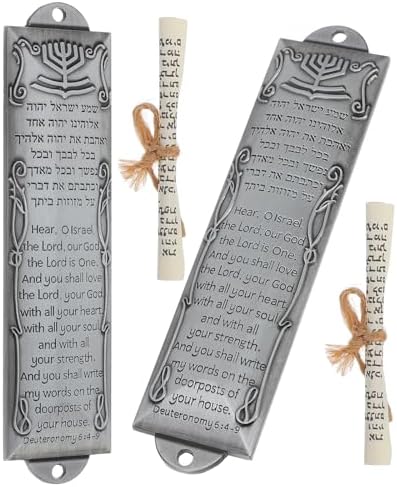 שמע ישראל יהוה
אלוהינו יהוה אחד
ואהבת את יהוה אלהיך
בכל לבבך ובכל
נפשך ובכל מאדך
וכתבתם את דברי
על מזוזות ביתך
Hear, O Israel
the Lord, our God
the Lord is One.
And you shall love
the Lord, your God
with all your heart,
with all your soul
and with all
your strength.
And you shall write
my words on the
doorposts of
your house.
Deuteronomy 6:4-9
שמע ישראל יהוה
אלוהינו יהוה אחד
ואהבת את יהוה אלהיך
בכל לבבך ובכל
נפשך ובכל מאדך
וכתבתם את דברי
על מזוזות ביתך
Hear, O Israel
the Lord, our God
the Lord is One.
And you shall love
the Lord, your God
with all your heart,
with all your soul
and with all
your strength.
And you shall write
my words on the
doorposts of
your house.
Deuteronomy 6:4-9